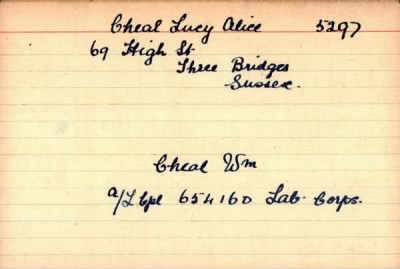 Cheal Lucy Alice 5297
69 High St
Three Bridges
Sussex.
Cheal Wm
a/L Cpl 654160 Lab. Corps.